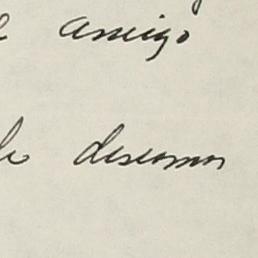 e amigo
le deseamos